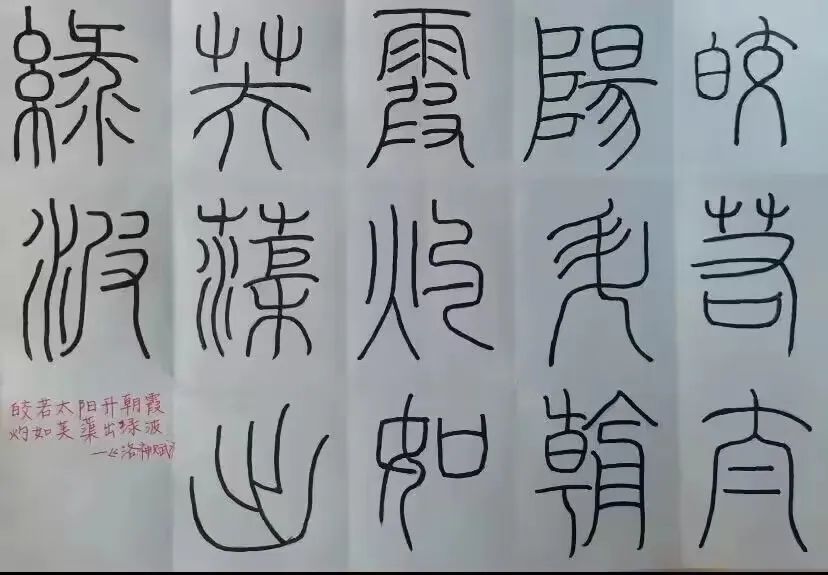 皎若太
陽升朝
霞灼如
芙蕖出
綠波
皎若太阳升朝霞
灼如芙蕖出绿波
—《洛神赋》